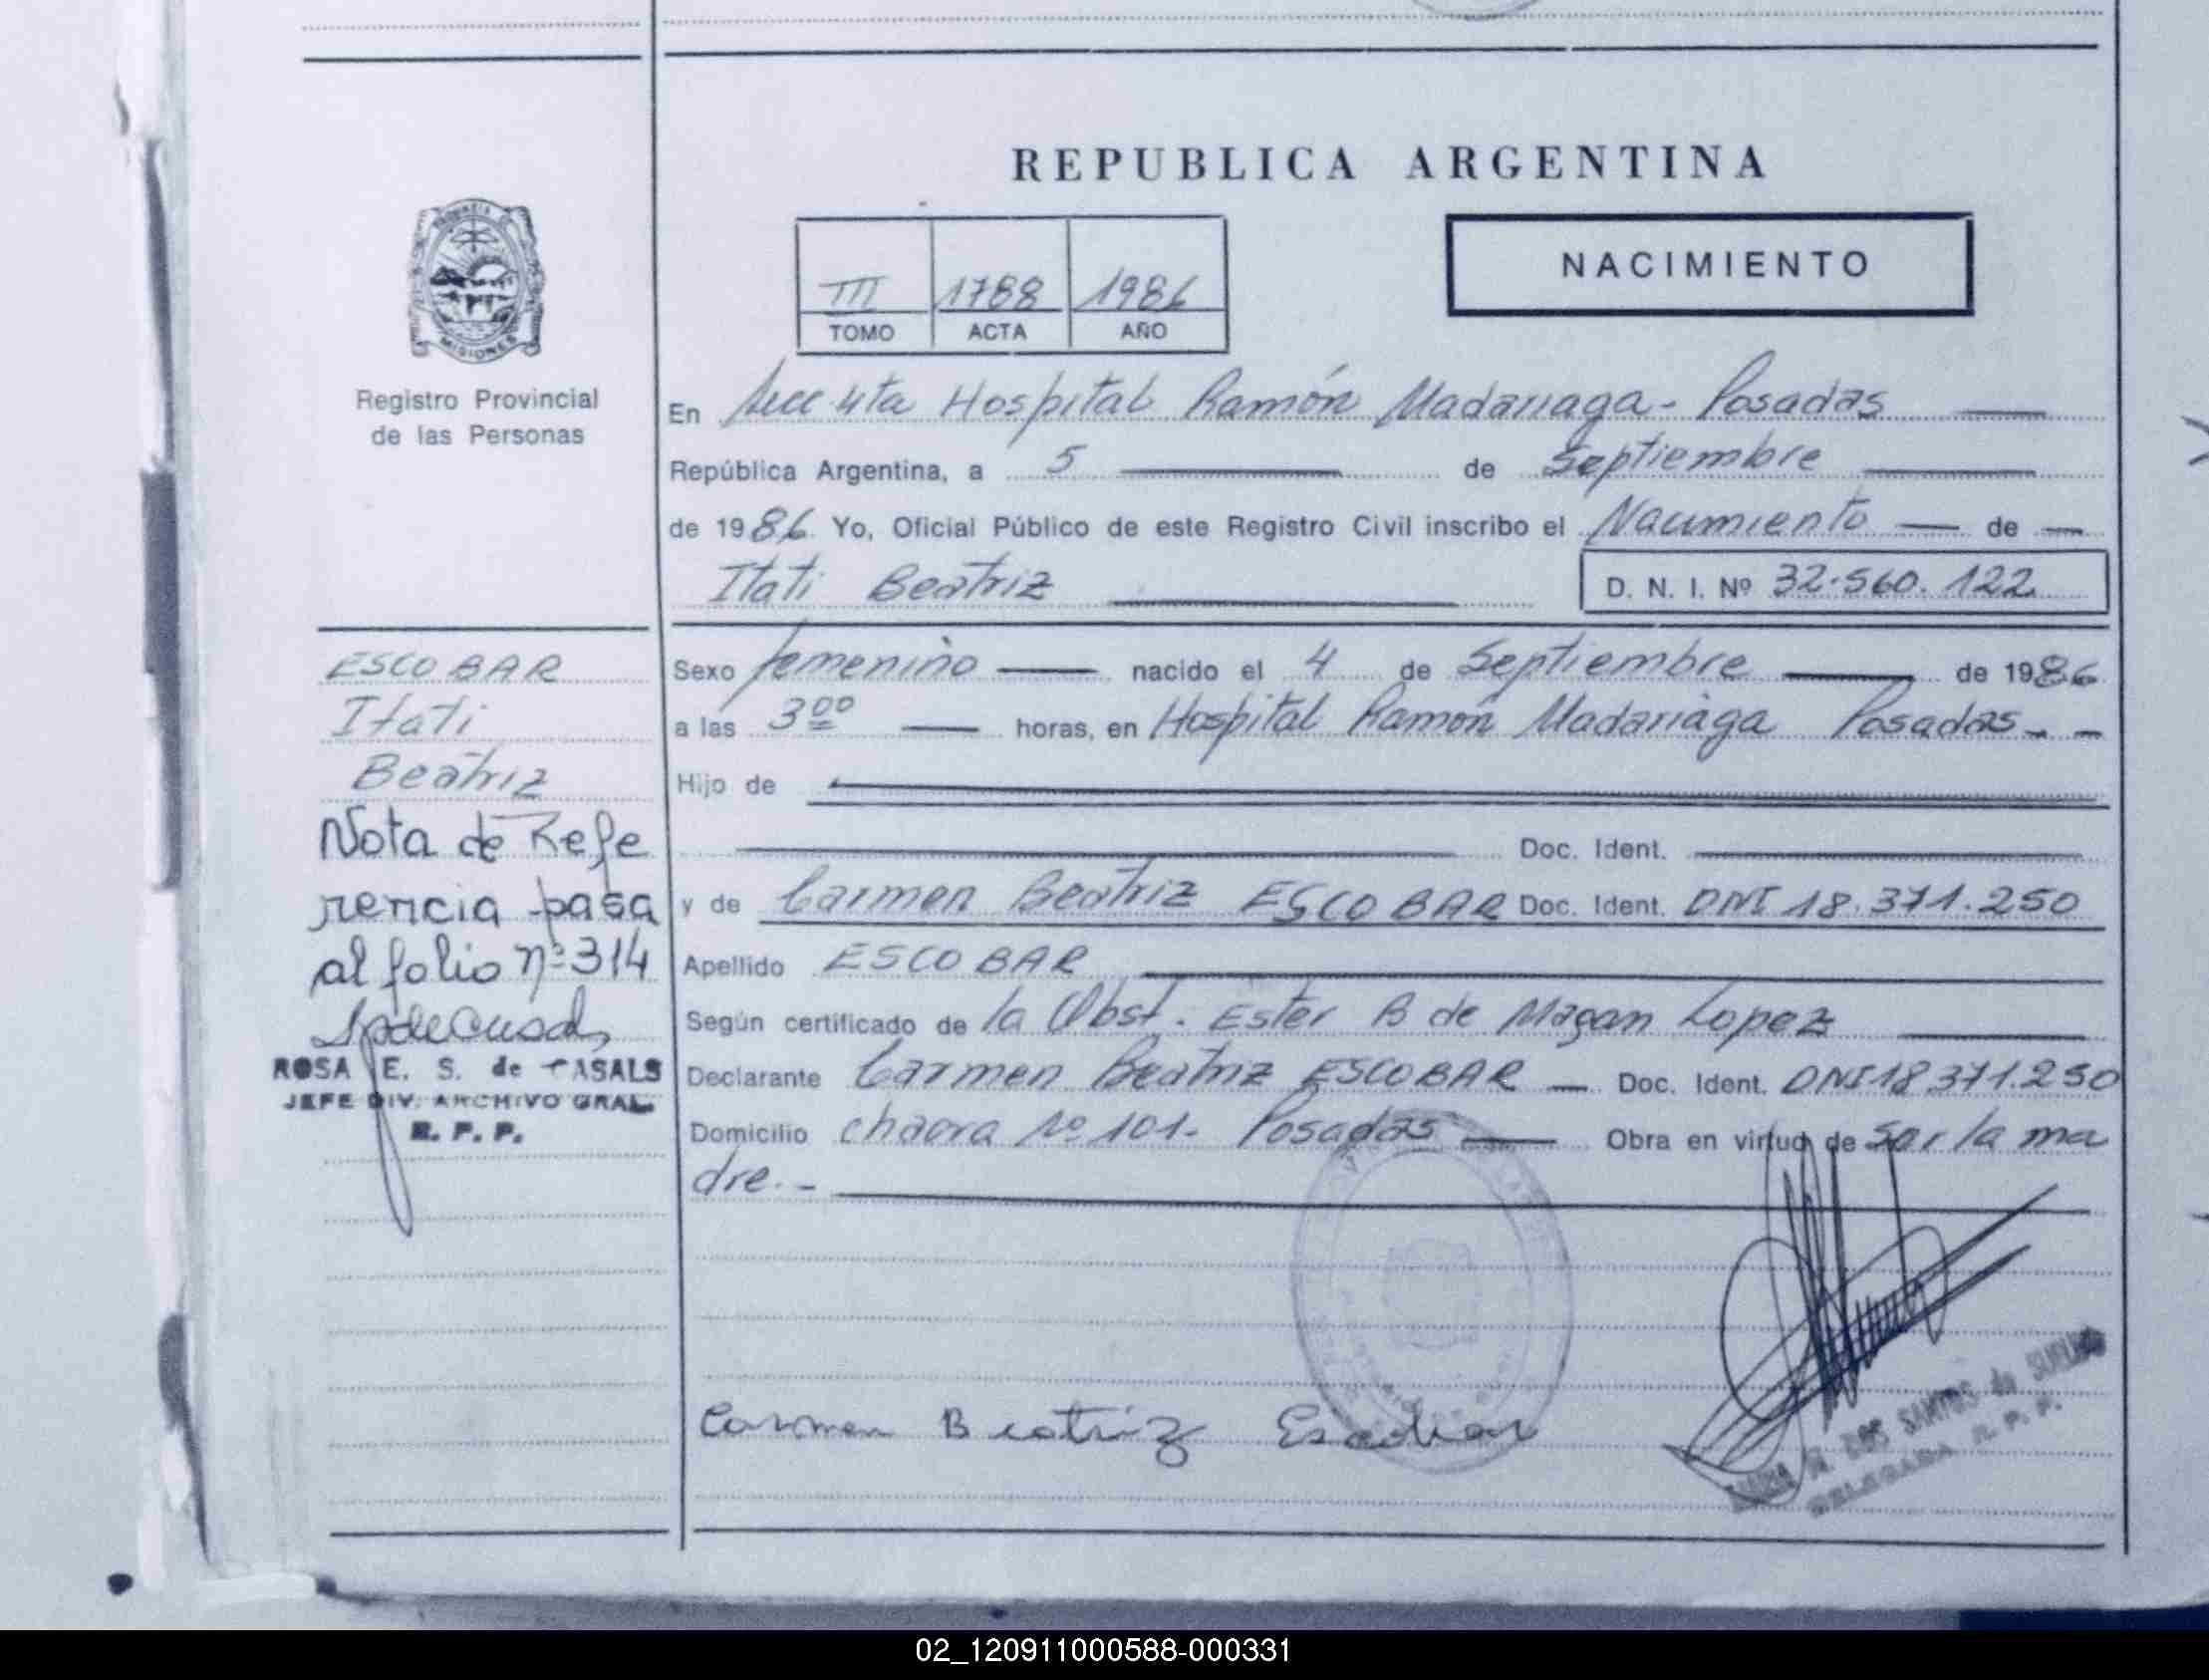 REPUBLICA ARGENTINA
NACIMIENTO
III 1788 1986
TOMO ACTA AÑO
MISIONES
Registro Provincial
de las Personas
En Secc 4ta Hospital Ramón Madariaga - Posadas
República Argentina, a 5 de Septiembre
de 1986. Yo, Oficial Público de este Registro Civil inscribo el Nacimiento de
Itati Beatriz D. N. I. Nº 32.560.122
ESCOBAR
Itati
Beatriz
Nota de Refe
rencia pasa
al folio nº 314
ROSA E. S. de CASALS
JEFE DIV. ARCHIVO GRAL.
R. P. P.
Sexo femenino nacido el 4 de Septiembre de 1986
a las 3 00 horas, en Hospital Ramón Madariaga Posadas - -
Hijo de
Doc. Ident.
y de Carmen Beatriz ESCOBAR Doc. Ident. DNI 18.371.250
Apellido ESCOBAR
Según certificado de la Obst. Ester B de Magan Lopez
Declarante Carmen Beatriz ESCOBAR — Doc. Ident. DNI 18 371.250
Domicilio chacra Nº 101 - Posadas Obra en virtud de ser la ma
dre. -
Carmen Beatriz Escobar
DOS SANTOS de
DELEGADA R. P. P.
02_120911000588-000331